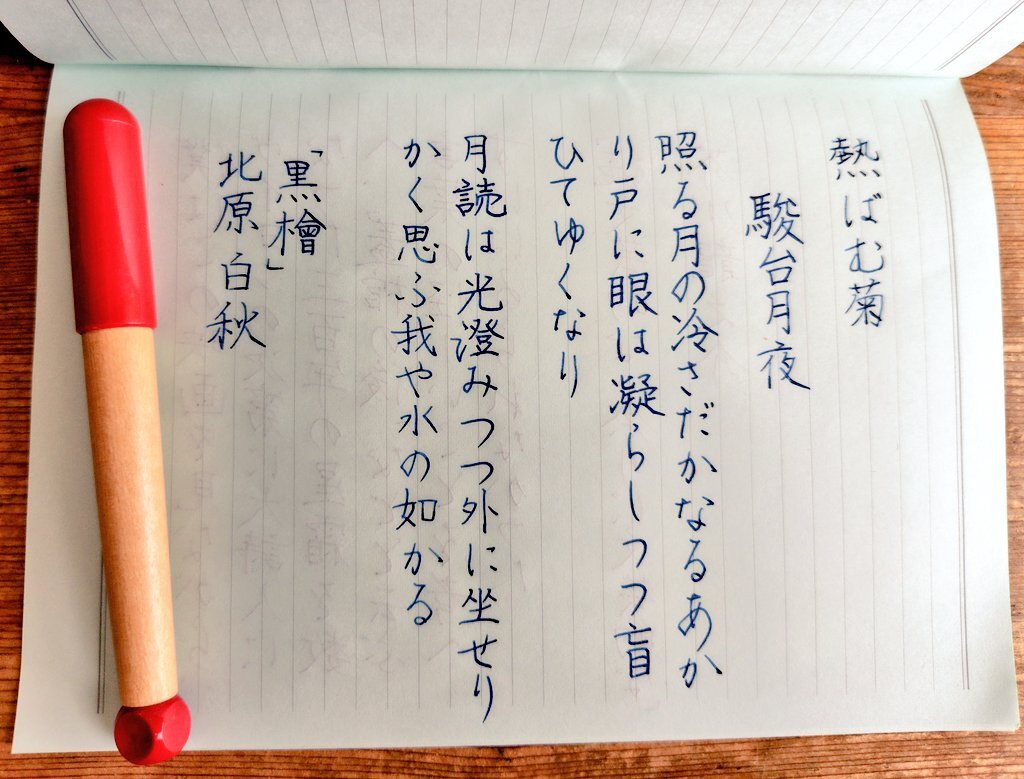 熱ばむ菊
駿台月夜
照る月の冷さだかなるあか
り戸に眼は凝らしつつ盲
ひてゆくなり
月読は光澄みつつ外に坐せり
かく思ふ我や水の如かる
「黒檜」
北原白秋